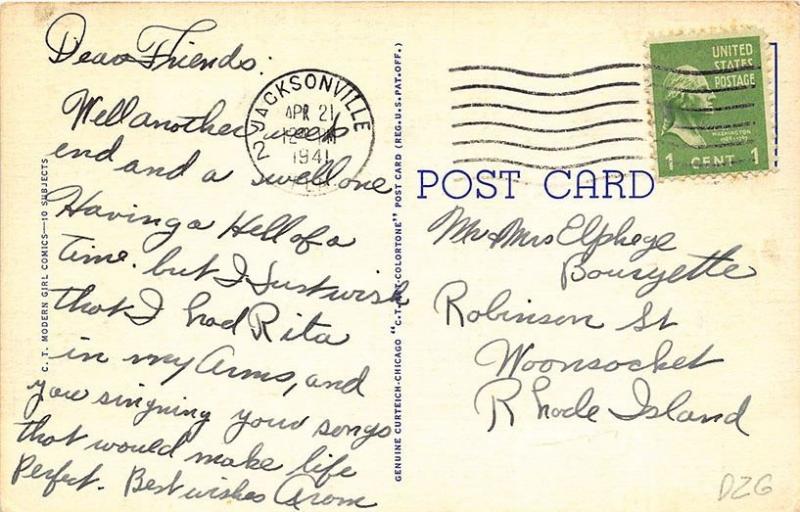 Dear Friends.
Well another week
end and a swell one
Having a Hell of a
time. but I Just wish
that I had Rita
in my Arms, and
you singning your songs
that would make life
Perfect. Best wishes
C. T. MODERN GIRL COMICS—10 SUBJECTS
JACKSONVILLE
APR 21
1941
2
GENUINE CURTEICH-CHICAGO "C.T. ART-COLORTONE" POST CARD (REG. U.S. PAT. OFF.)
UNITED
STATES
POSTAGE
WASHINGTON
1 CENT 1
POST CARD
Mr Mrs Elphege
Robinson St
Woonsocket
Rhode Island
DZG